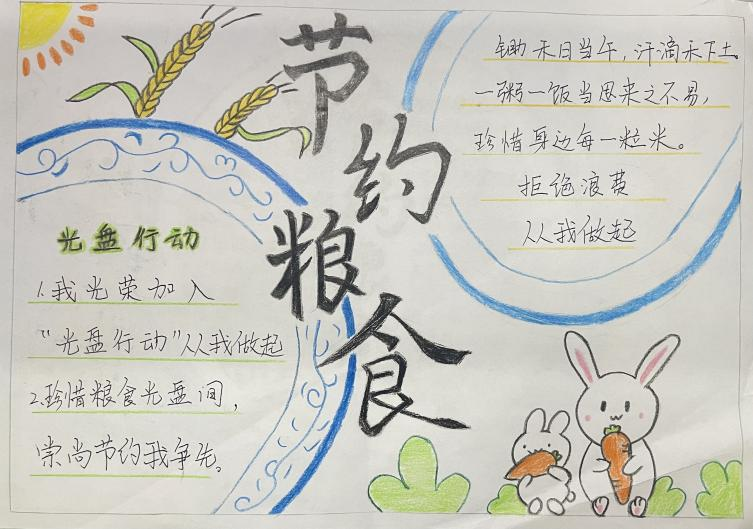 节约粮食
锄禾日当午，汗滴禾下土。
一粥一饭当思来之不易，
珍惜身边每一粒米。
拒绝浪费
从我做起
光盘行动
1.我光荣加入
“光盘行动”从我做起
2.珍惜粮食光盘间，
崇尚节约我争先。